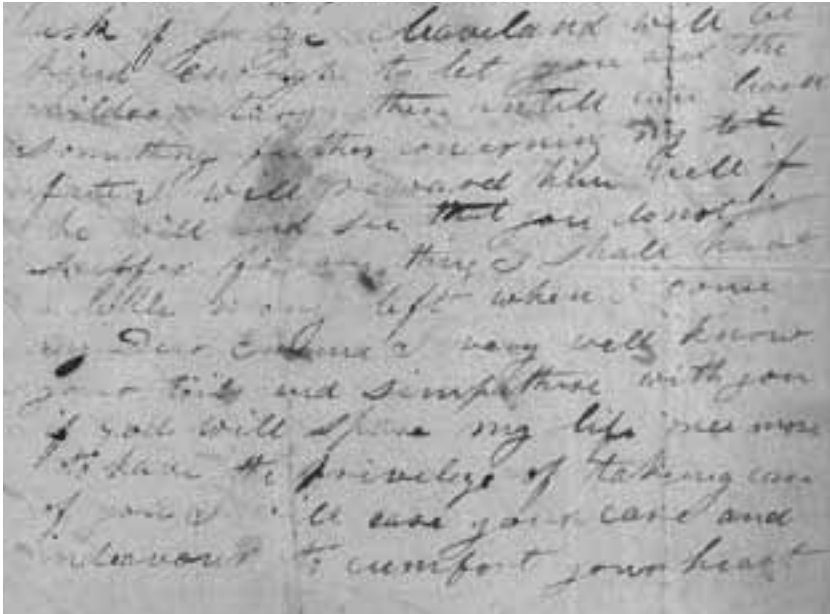 ask if judge Cleaveland will be
kind enough to let you and the
children tarry there untill you learn
something further concerning my lot
fate I will reward him well if
he will and see that you do not
suffer for any thing I shall have
a little mony left when I come
my Dear Emma I very well know
your toils and simpathise with you
if god will spare my life once more
to have the privelige of takeing care
of you I will ease your care and
indeavour to cumfort your heart